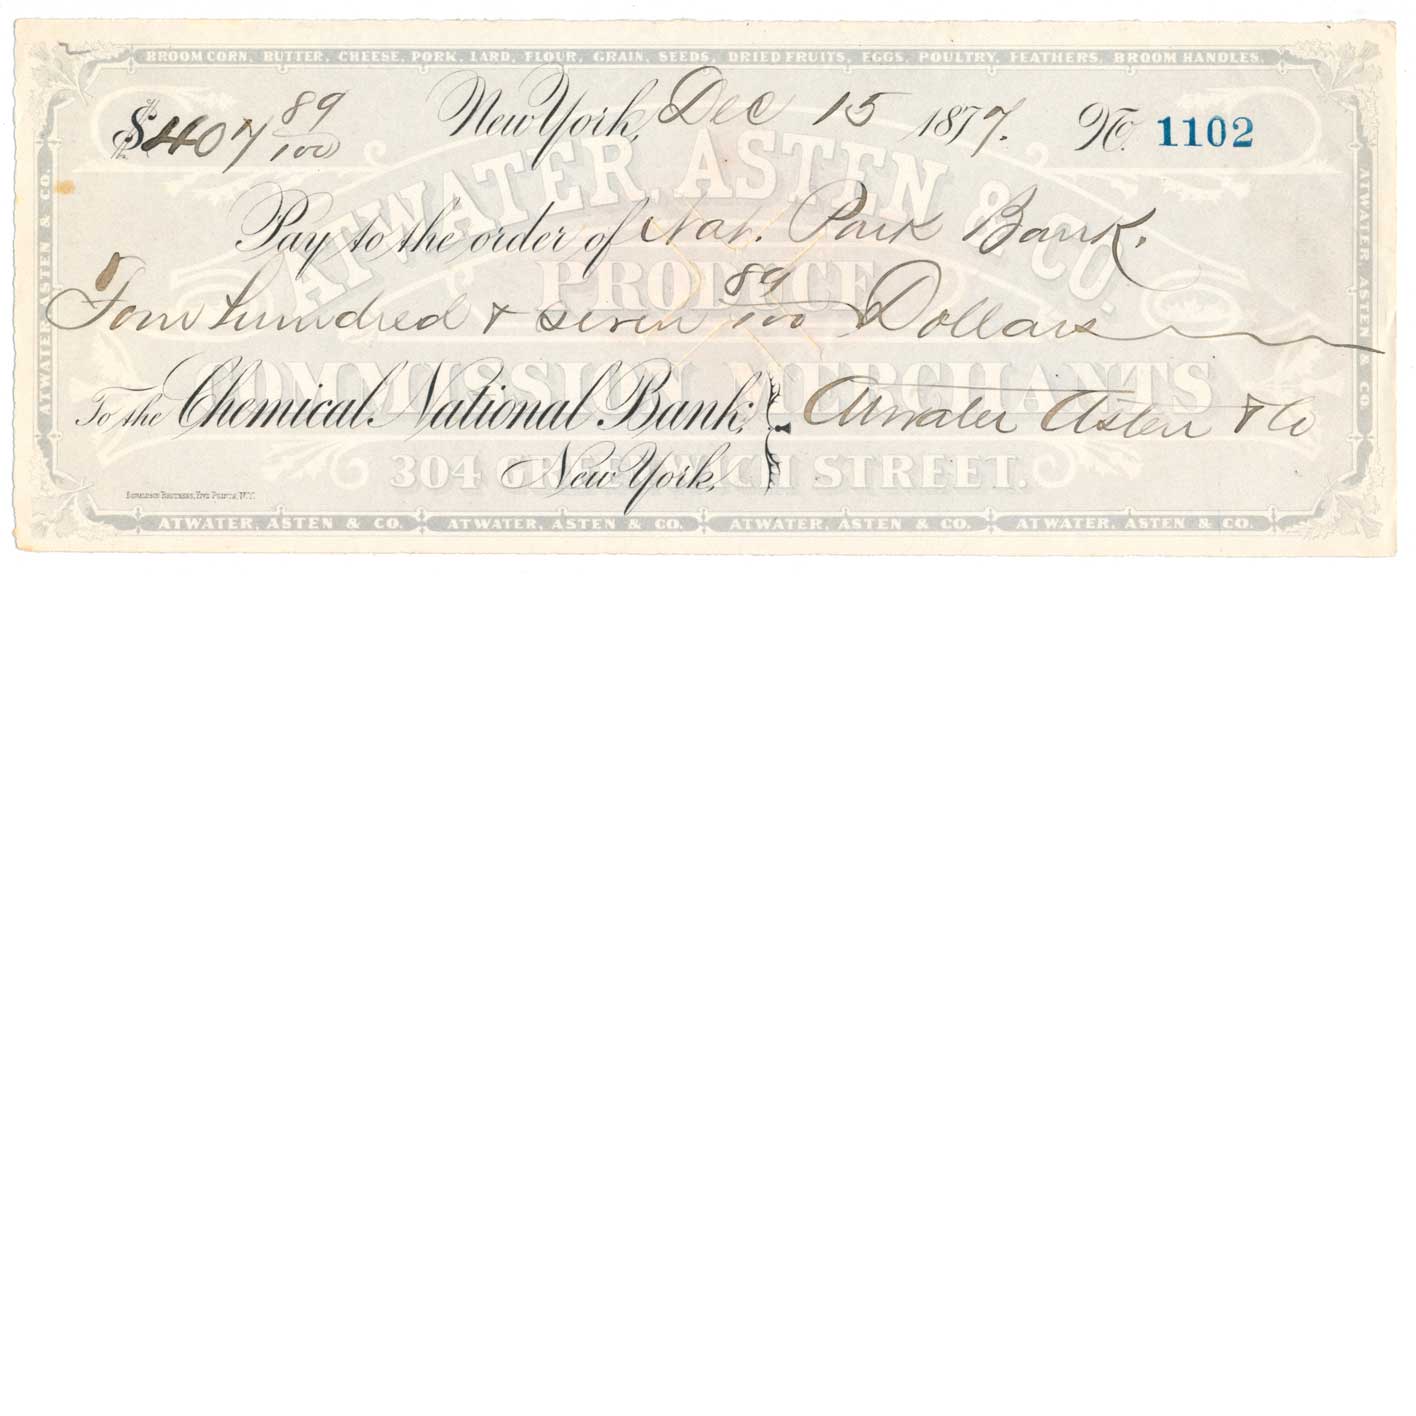 BROOM CORN, BUTTER, CHEESE, PORK, LARD, FLOUR, GRAIN, SEEDS, DRIED FRUITS, EGGS, POULTRY, FEATHERS, BROOM HANDLES,
$407 89/100 New York, Dec 15 1877. No. 1102
ATWATER, ASTEN & CO.
Pay to the order of Nat. Park Bank.
PRODUCE
Four hundred & seven 89/100 Dollars
COMMISSION MERCHANTS
To the Chemical National Bank, Atwater Asten & Co
304 GREENWICH STREET.
New York,
DONALDSON BROTHERS, FIVE POINTS, N.Y.
ATWATER, ASTEN & CO. ATWATER, ASTEN & CO. ATWATER, ASTEN & CO. ATWATER, ASTEN & CO.
ATWATER ASTEN & CO.
ATWATER, ASTEN & CO.